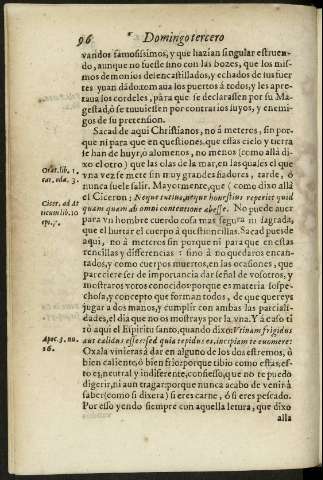 96 Domingo tercero
vandos famosissimos, y que hazian singular estruen-
do, aunque no fuesse sino con las bozes, que los mis-
mos demonios desencastillados, y echados de sus fuer
tes yuan dãdo: tomaua los puertos à todos, y les apre-
taua los cordeles, para que se declarassen por su Ma-
gestad, ò se tuuiessen por contrarios suyos, y enemi-
gos de su pretension.
Sacad de aqui Christianos, no à meteros, sin por-
que ni para que en questiones, que essas cielo y tierra
se han de huyr, o alomenos, no menos (como allà di-
xo el otro) que las olas de la mar, en las quales el que
vna vez se mete sin muy grandes fiadores, tarde, ò
nunca suele salir. Mayormente, que (como dixo allà
el Ciceron: Neque tutius, neque honestius reperiet quid
quam quam ab omni contentione abesse. No puede auer
para vn hombre cuerdo cosa mas segura ni sagrada,
que el hurtar el cuerpo à questiuncillas. Sacad puesde
aqui, no à meteros sin porque ni para que en estas
rencillas y differencias: sino à no quedaros encan-
tados, y como cuerpos muertos, en las ocasiones, que
pareciere ser de importancia dar señal de vosotros, y
mostraros votos conocidos: porque es materia sospe-
chosa, y concepto que forman todos, de que quereys
jugar a dos manos, y cumplir con ambas las parciali-
dades, el dia que no os mostrays por la vna. Y à esso ti
rò aqui el Espiritu santo, quando dixo: Vtinam frigidus
aut calidus esses: sed quia tepidus es, incipiam te euomere:
Oxala vinieras à dar en alguno de los dos estremos, ò
bien caliente, ò bien frio: porque tibio como estas, es-
to es, neutral y indiferente, confiesso, que no te puedo
digerir, ni aun tragar: porque nunca acabo de venir à
saber (como si dixera) si eres carne, ò si eres pescado.
Por esso yendo siempre con aquella letura, que dixo
alla
Orat. lib. 1.
rat. oda. 3.
Cicer. ad At
ticum lib. 10
Apoc. 3. nu.
16.